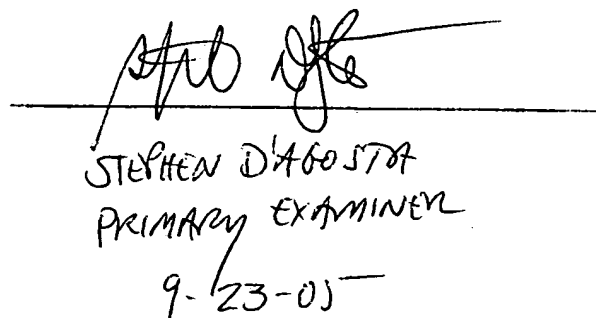 STEPHEN D'AGOSTA
PRIMARY EXAMINER
9-23-05